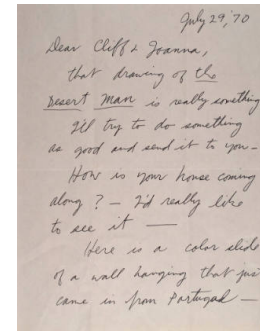 July 29, '70
Dear Cliff & Joanna,
that drawing of the
Desert Man is really something
I'll try to do something
as good and send it to you –
How is your house coming
along? – I'd really like
to see it —
Here is a color slide
of a wall hanging that just
came in from Portugal —